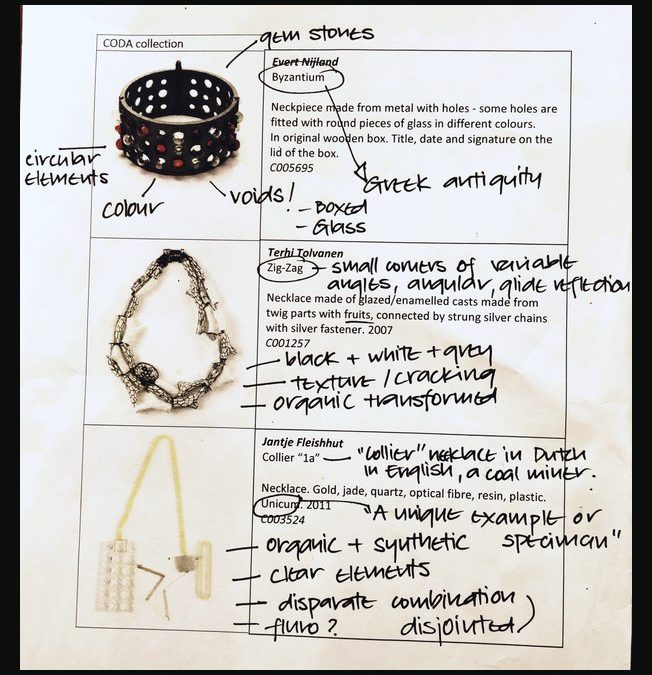 gem stones
CODA collection
Evert Nijland
Byzantium
Neckpiece made from metal with holes - some holes are
fitted with round pieces of glass in different colours.
In original wooden box. Title, date and signature on the
lid of the box.
C005695
circular
elements
colour
voids!
Greek antiquity
- Boxed
- Glass
Terhi Tolvanen
Zig-Zag - small corners of variable
angles, angular, glide reflection
Necklace made of glazed/enamelled casts made from
twig parts with fruits, connected by strung silver chains
with silver fastener. 2007
C001257
black + white + grey
texture / cracking
organic transformed
Jantje Fleishhut
Collier "1a" — "collier" necklace in Dutch
in English, a coal miner.
Necklace. Gold, jade, quartz, optical fibre, resin, plastic.
Unicum. 2011
C003524
"A unique example or
speciman"
- organic + synthetic
- clear elements
- disparate combination
- fluro? disjointed